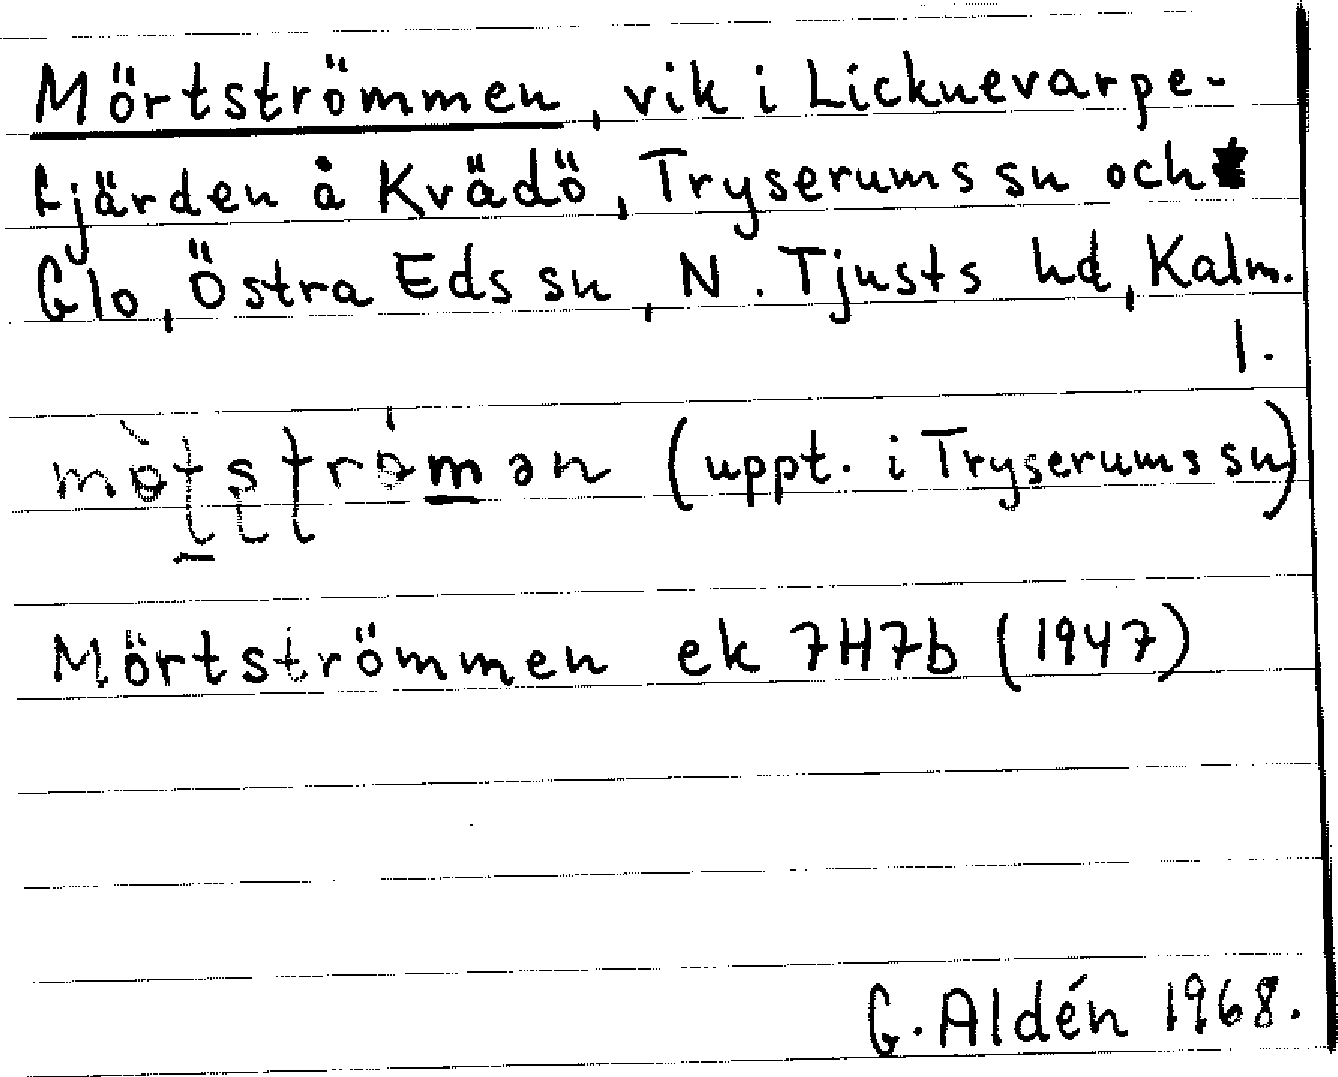 Mörtströmmen, vik i Licknevarpe-
fjärden å Kvädö, Tryserums sn och
Glo, Östra Eds sn, N. Tjusts hd, Kalm.
l.
(uppt. i Tryserums sn)
Mörtströmmen ek 7H7b (1947)
G. Aldén 1968.